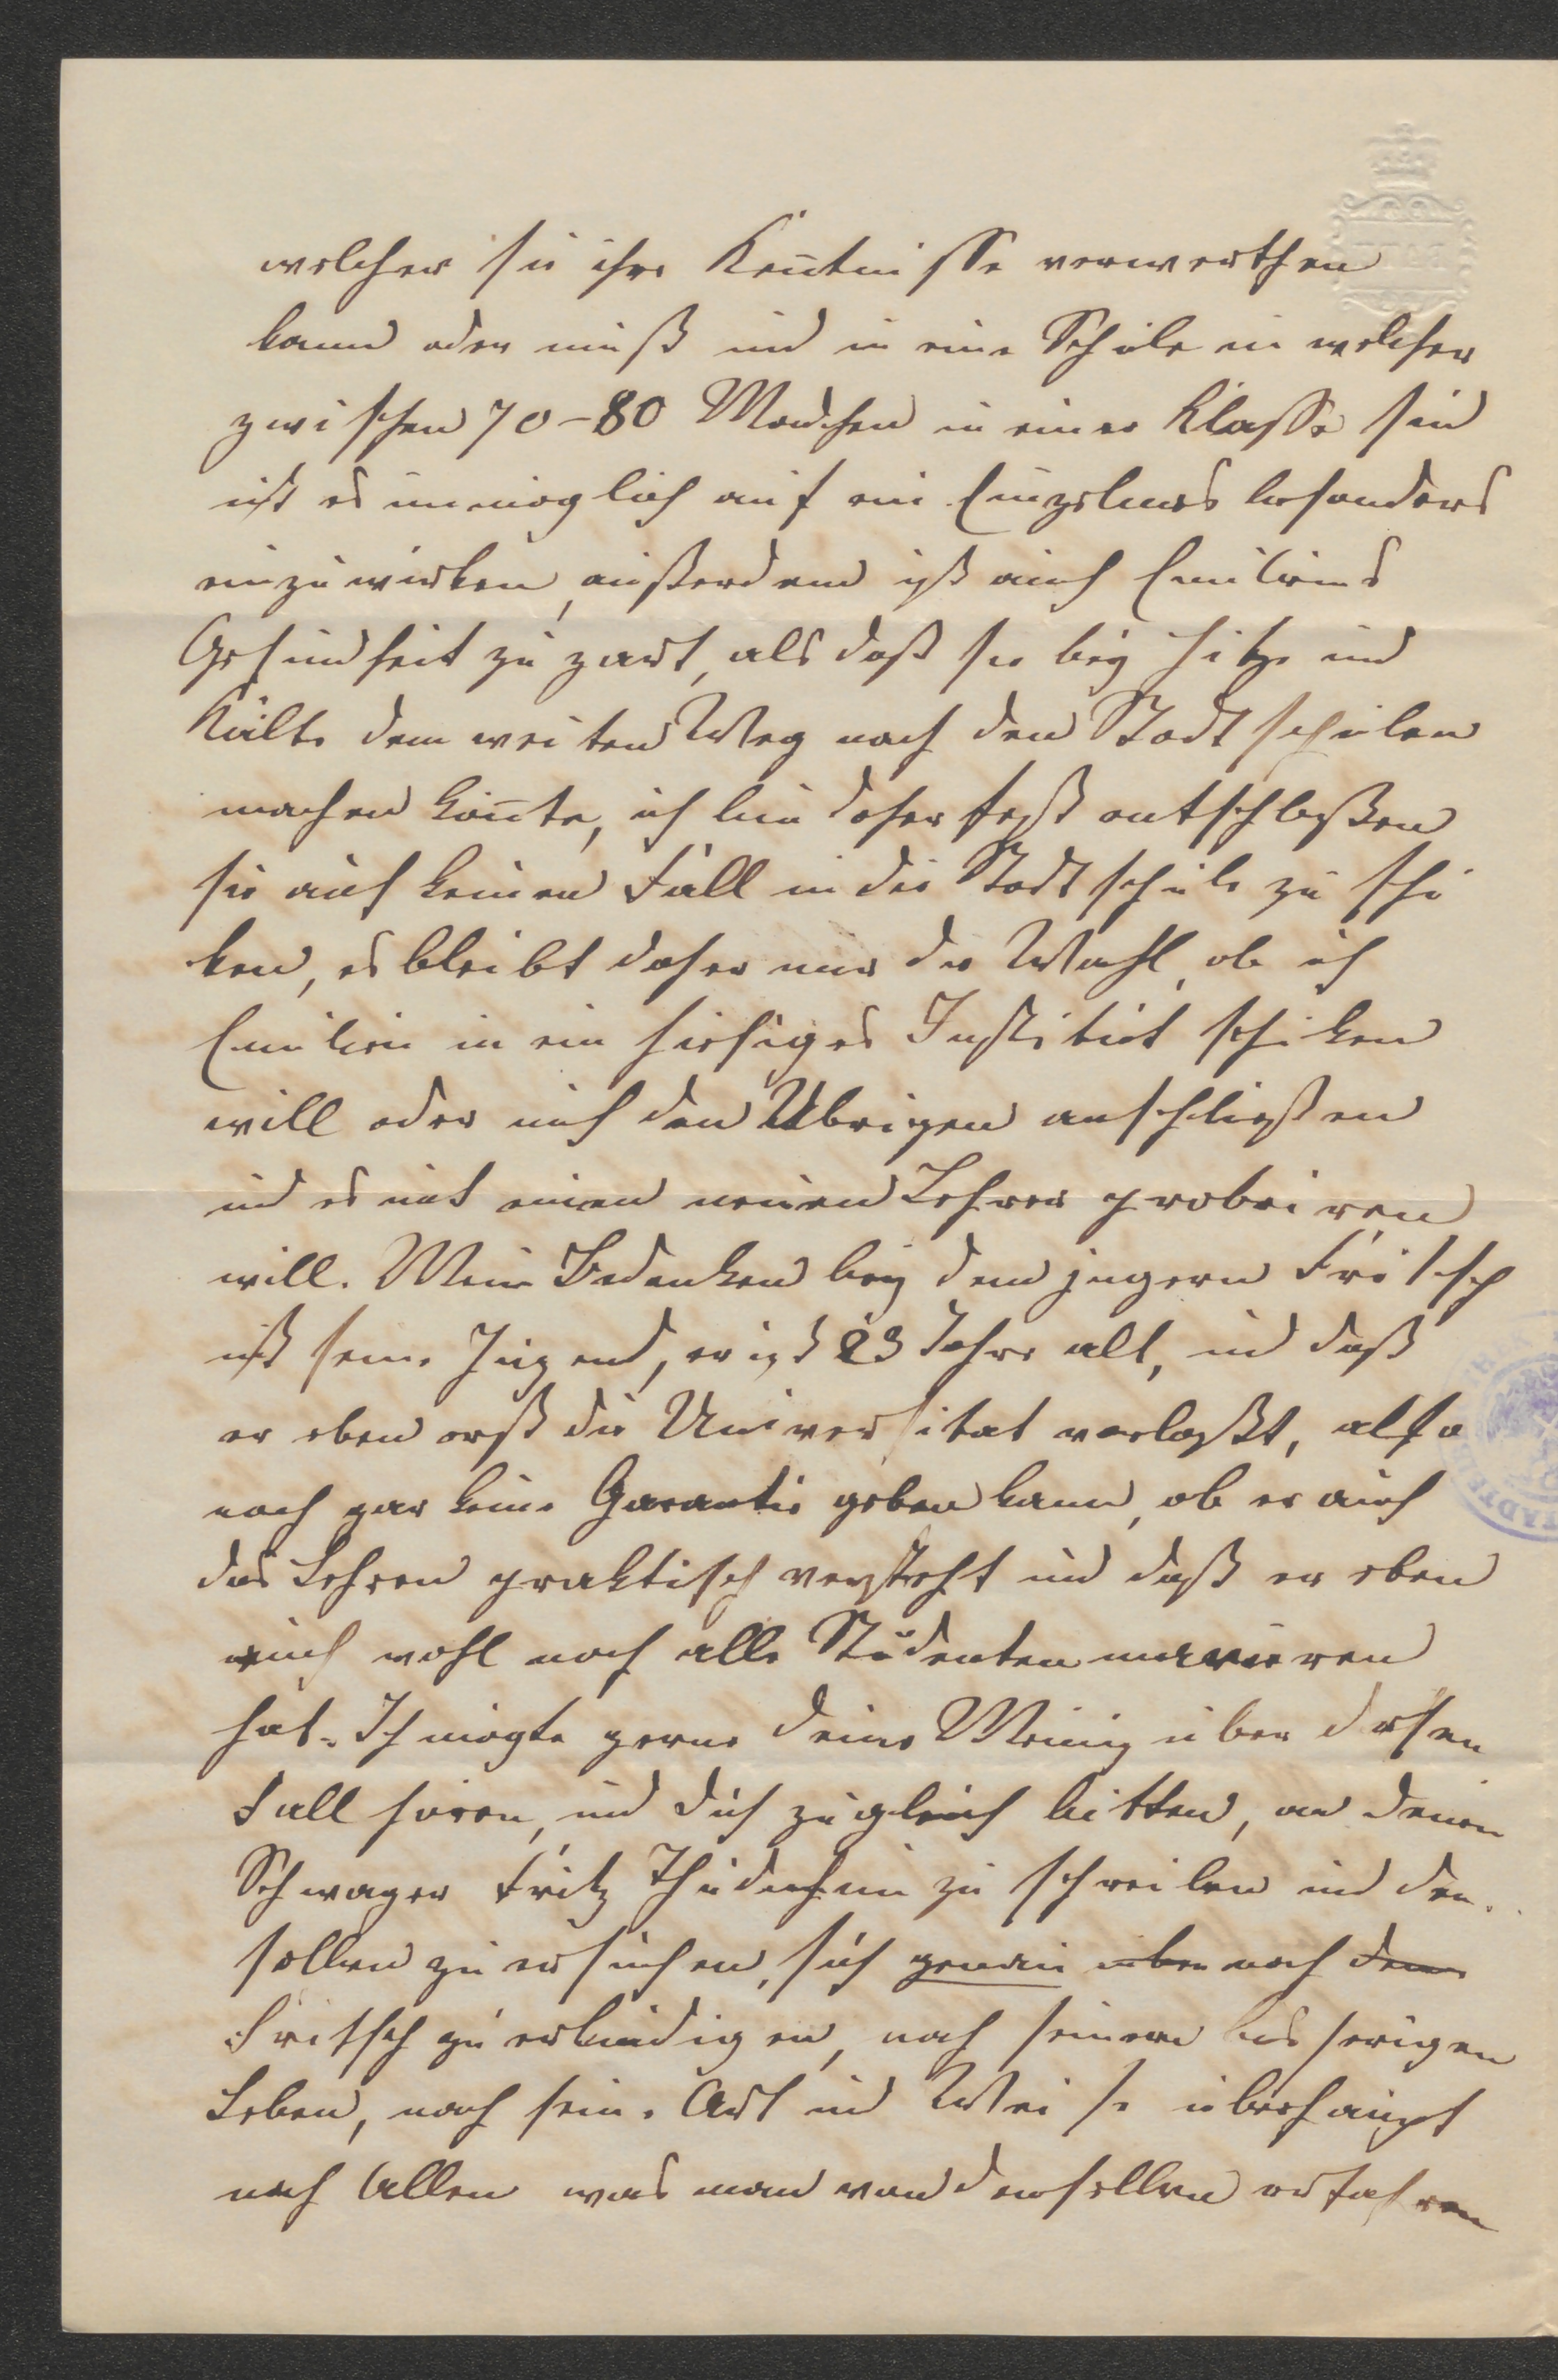 welcher sie ihre Kentnisse verwerthen
kann oder muß und in eine Schule in welcher
zwischen 70-80 Madchen in einer Klasse sind
ist es unmöglich auf ein Einzelnes besonders
einzuwirken, außerdem ist auch Emiliens
Gesundheit zu zart, als daß sie bey Hitze und
Kälte dem weiten Weg nach den Stadtschulen
machen könte, ich bin daher fest entschloßen
sie auf keinen Fall in die Stadtschule zu schi
ken, es bleibt daher nur die Wahl, ob ich
Emilien in ein hiesiges Institut schiken
will oder mich den Übrigen anschließen
und es mit einen neuen Lehrer probiren
will. Mein Bedenken bey dem jugern Fritsch
ist seine Jugend, er ist 23 Jahre alt, und daß
er eben erst die Universitat verlaßt, also
noch gar keine Garantie geben kann, ob er auch
das Lehren praktisch versteht und daß er eben
auch wohl noch alle Studentenmanieren
hat. Ich mögte gerne deine Meinung über diesen
Fall hören, und dich zugleich bitten, an deinen
Schwager Fritz Thudichum zu schreiben und den
selben zu ersuchen, sich genau über nach dem
Fritsch zu erkundigen, nach seinem bisherigen
Leben, nach seine Art und Weise überhaupt
nach Allen was man von demselben erfahren